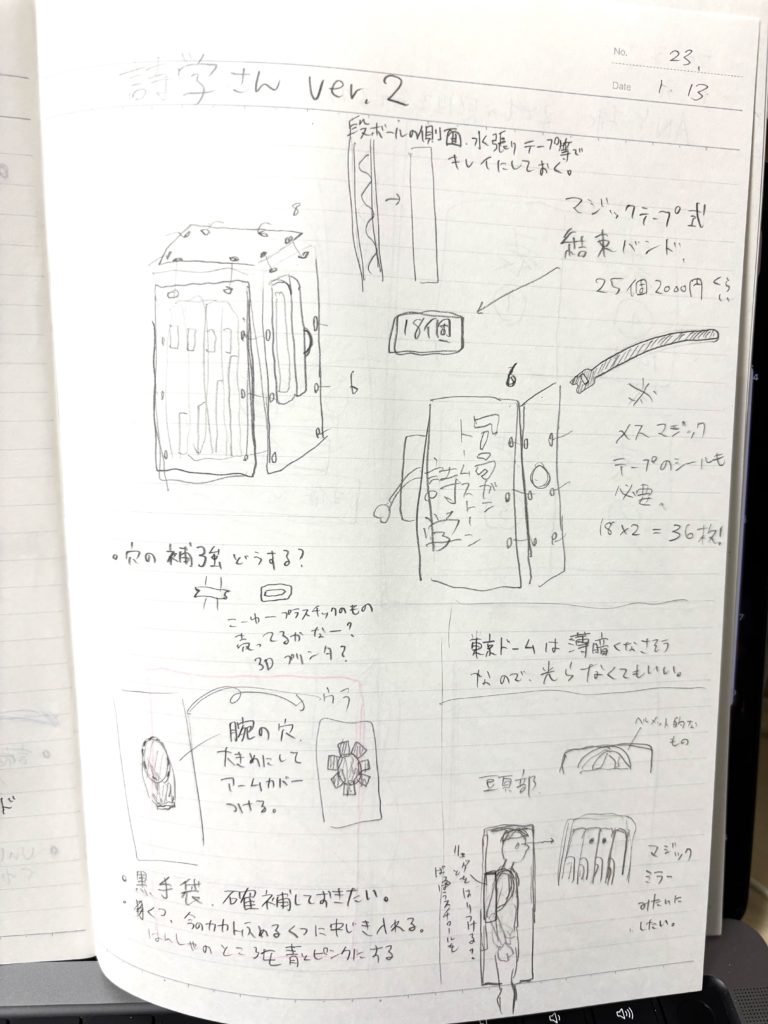 No. 23.
Date 1. 13
詩学さん ver.2
段ボールの側面、水張りテープ等で
キレイにしておく。
マジックテープ式
結束バンド、
25個2000円くらい
18個
8
6
6
※
メスマジック
テープのシールも
必要、
18×2=36枚!
詩学
トームストーン
・穴の補強どうする?
こーゆープラスチックのもの
売ってるかなー?
3Dプリンタ?
東京ドームは薄暗くなさそう
なので、光らなくてもいい。
ウラ
腕の穴、
大きめにして
アームカバー
つける。
ヘルメット的な
もの
頭部
マジック
ミラー
みたいに
したい。
はりつける?
・黒手袋、確補しておきたい。
くつ、今のカカト入めるくつに中じき入れる。
はんしゃのところを青とピンクにする